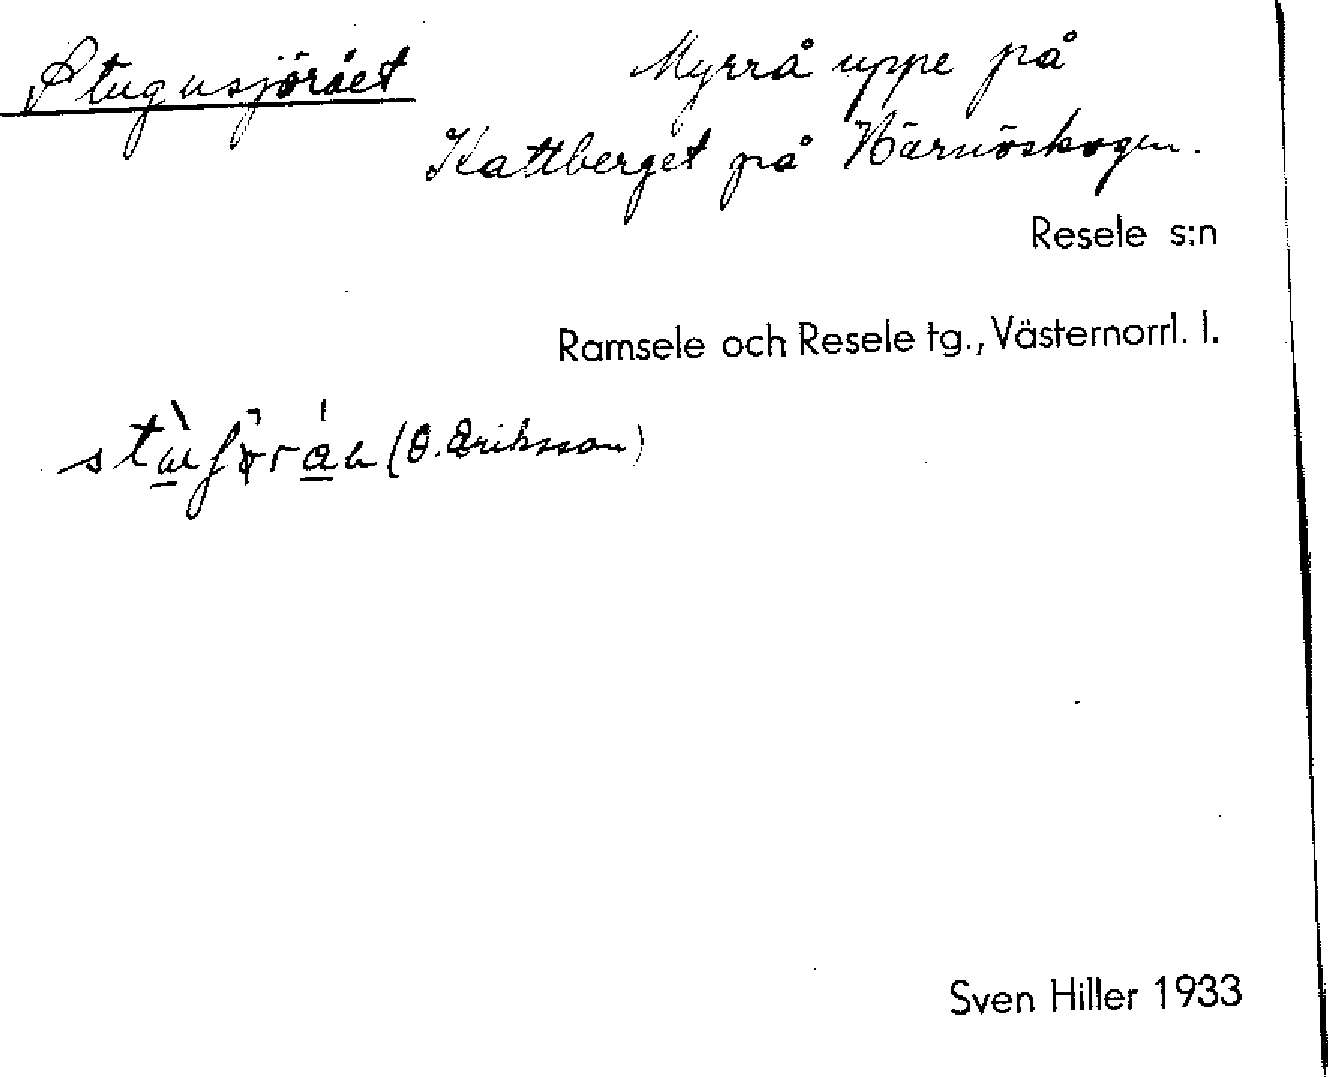 Stugusjörået
Myrrå uppe på
Kattberget på Härnöskogen.
Resele s:n
Ramsele och Resele tg., Västernorrl. l.
(O. Eriksson)
Sven Hiller 1933